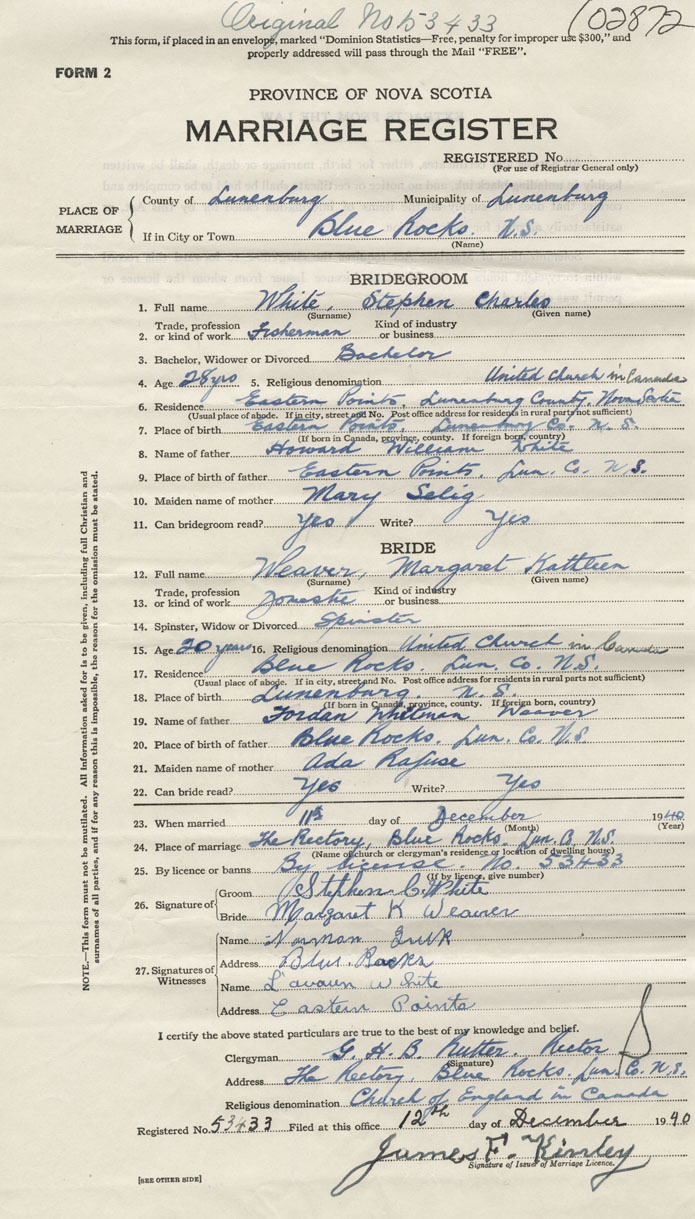 Original No 53433 (02872
This form, if placed in an envelope, marked "Dominion Statistics—Free, penalty for improper use $300," and
properly addressed will pass through the Mail "FREE".
FORM 2
PROVINCE OF NOVA SCOTIA
MARRIAGE REGISTER
REGISTERED No.
(For use of Registrar General only)
PLACE OF MARRIAGE
County of Lunenburg Municipality of Lunenburg
If in City or Town Blue Rocks. N.S.
(Name)
BRIDEGROOM
1. Full name White, Stephen Charles
(Surname) (Given name)
Trade, profession Kind of industry
2. or kind of work Fisherman or business
3. Bachelor, Widower or Divorced Bachelor
4. Age 28 yrs 5. Religious denomination United Church in Canada
6. Residence Eastern Points, Lunenburg County, Nova Scotia
(Usual place of abode. If in city, street and No. Post office address for residents in rural parts not sufficient)
7. Place of birth Eastern Points, Lunenburg Co. N. S.
(If born in Canada, province, county. If foreign born, country)
8. Name of father Howard William White
9. Place of birth of father Eastern Points, Lun. Co. N.S.
10. Maiden name of mother Mary Selig
11. Can bridegroom read? Yes Write? Yes
BRIDE
12. Full name Weaver, Margaret Kathleen
(Surname) (Given name)
Trade, profession Kind of industry
13. or kind of work Domestic or business
14. Spinster, Widow or Divorced Spinster
15. Age 20 years 16. Religious denomination United Church in Canada
17. Residence Blue Rocks. Lun. Co. N.S.
(Usual place of abode. If in city, street and No. Post office address for residents in rural parts not sufficient)
18. Place of birth Lunenburg. N. S.
(If born in Canada, province, county. If foreign born, country)
19. Name of father Jordan Whitman Weaver
20. Place of birth of father Blue Rocks. Lun. Co. N.S
21. Maiden name of mother Ada Rafuse
22. Can bride read? Yes Write? Yes
23. When married 11th day of December 1940
(Month) (Year)
24. Place of marriage The Rectory, Blue Rocks. Lun. Co. N.S.
(Name of church or clergyman's residence or location of dwelling house)
25. By licence or banns By licence. No. 53433
(If by licence, give number)
26. Signature of
Groom Stephen C. White
Bride Margaret K Weaver
27. Signatures of Witnesses
Name Norman
Address Blue Rocks
Name White
Address Eastern Points
I certify the above stated particulars are true to the best of my knowledge and belief.
Clergyman G. H. B. Rector
(Signature)
Address The Rectory, Blue Rocks. Lun. Co. N.S.
Religious denomination Church of England in Canada
Registered No. 53433 Filed at this office 12th day of December 1940
James F. Kinley
Signature of Issuer of Marriage Licence.
[SEE OTHER SIDE]
NOTE.—This form must not be mutilated. All information asked for is to be given, including full Christian and
surnames of all parties, and if for any reason this is impossible, the reason for the omission must be stated.